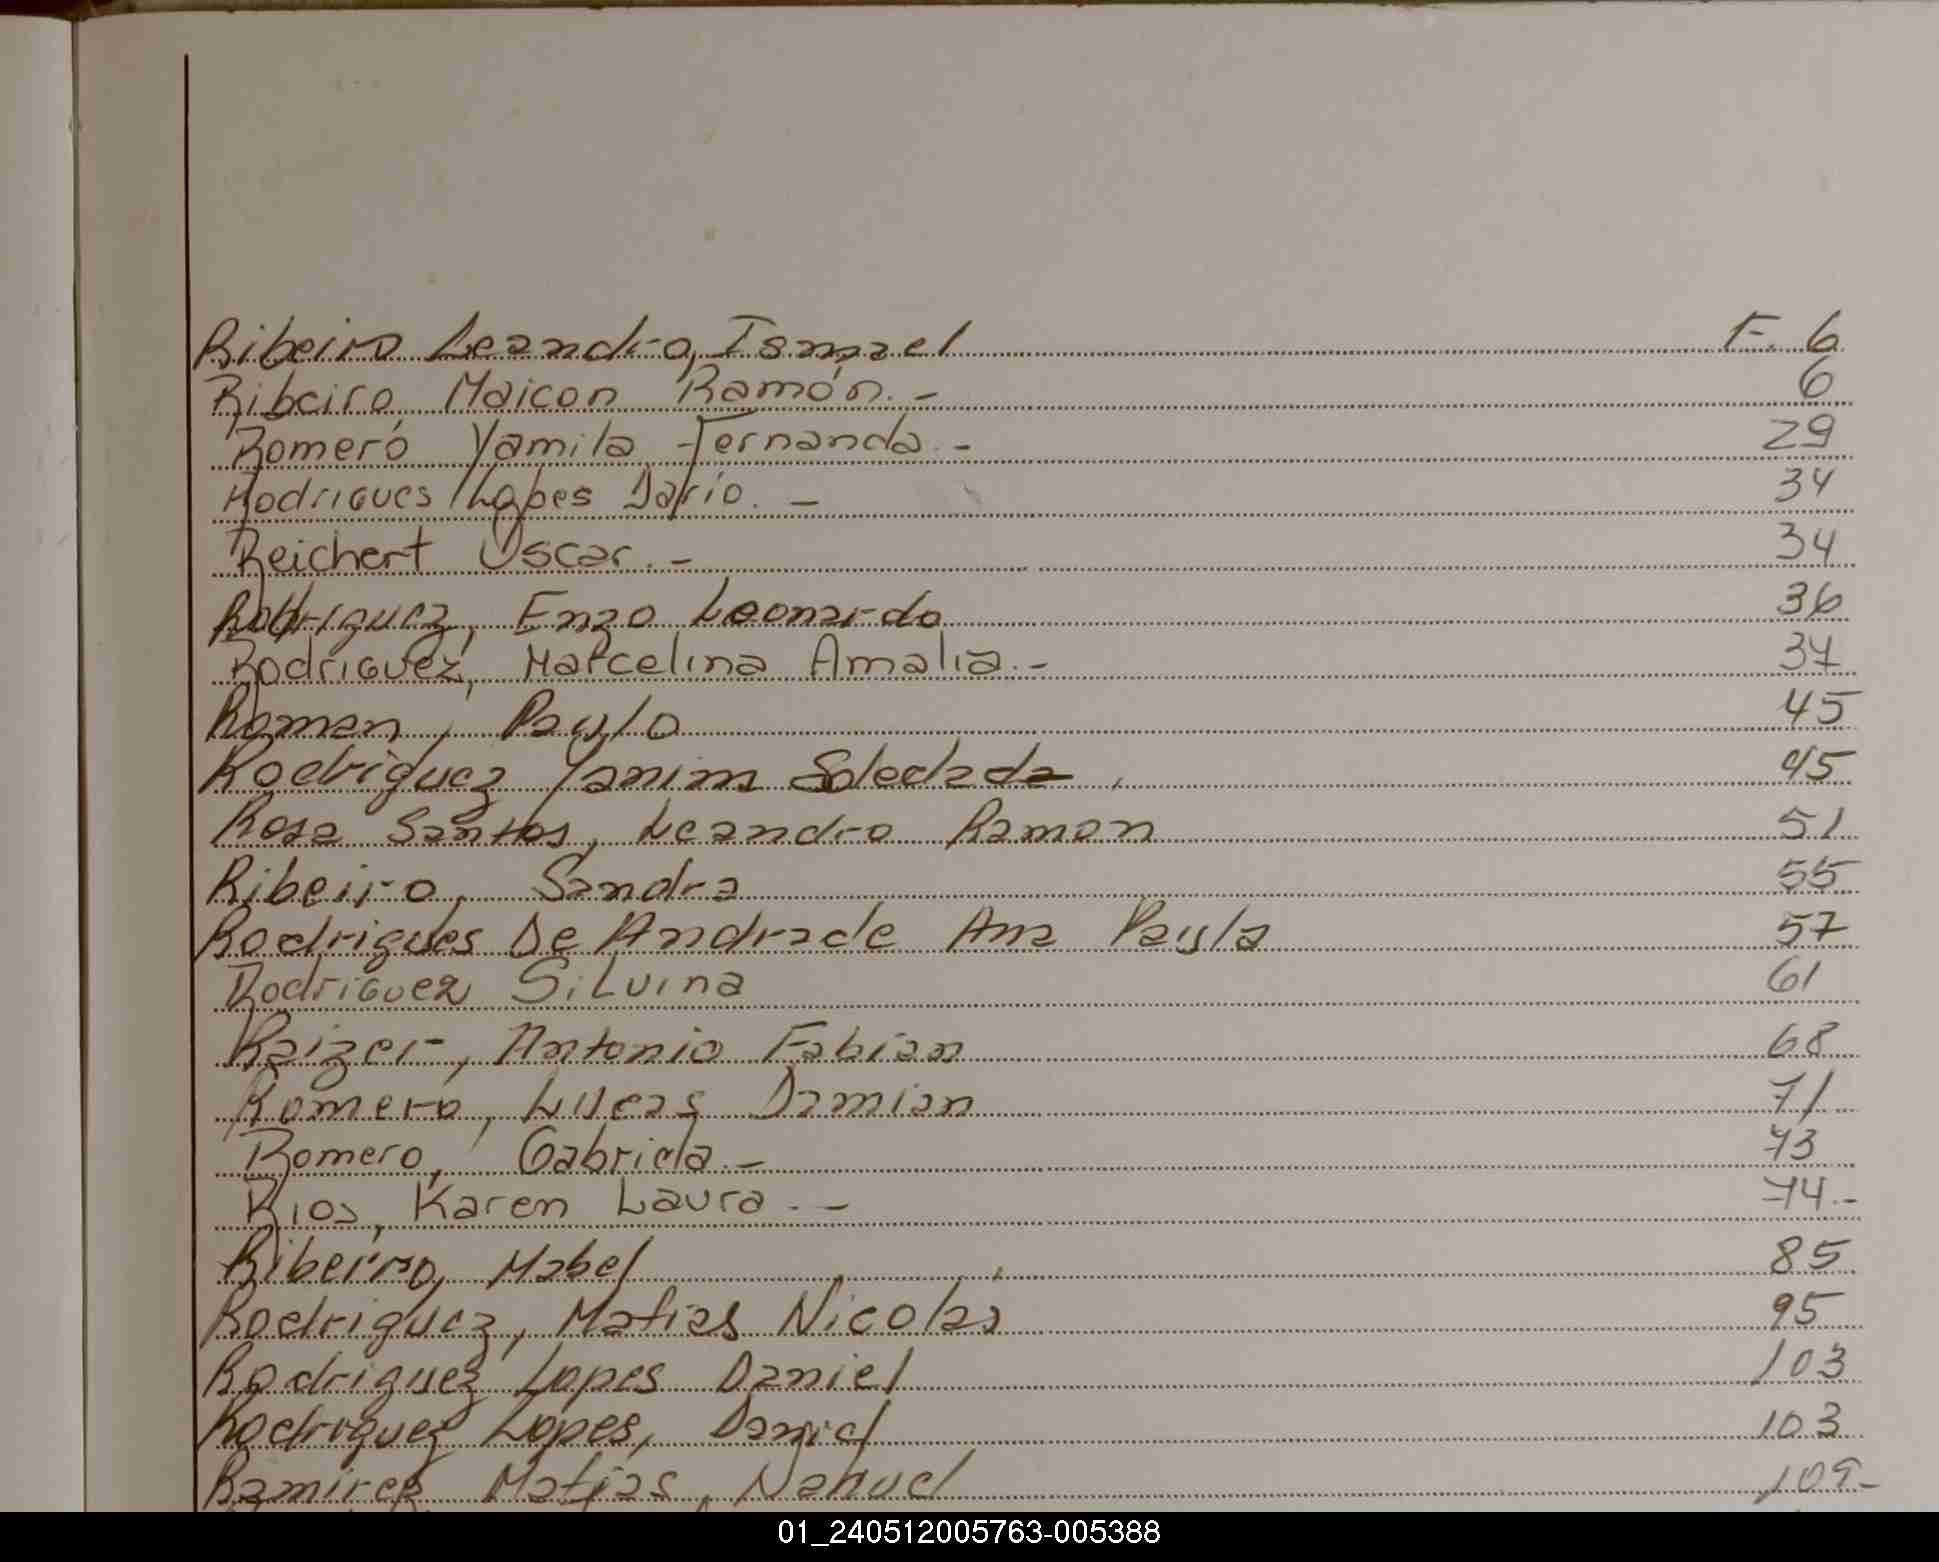 Ribeiro Leandro, Ismael F. 6
Ribeiro, Maicon Ramón.- 6
Romero Yamila Fernanda.- 29
Rodrigues Lopes Dario.- 34
Reichert Oscar.- 34
Rodriguez, Enzo Leonardo 36
Rodriguez, Marcelina Amalia.- 37
Roman, Paulo 45
Rodriguez Yanim Soledada 45
Rosa Santos, Leandro Ramon 51
Ribeiro, Sandra 55
Rodrigues De Andrade Ana Paula 57
Rodriguez Silvina 61
Raizer, Antonio Fabian 68
Romero, Lucas Damian 71
Romero, Gabriela.- 73
Rios, Karen Laura.- 74.-
Ribeiro, Mabel 85
Rodriguez, Matias Nicolas 95
Rodriguez Lopes Daniel 103
Rodriguez Lopes, Daniel 103
Ramirez Matias, Nahuel 109-
01_240512005763-005388